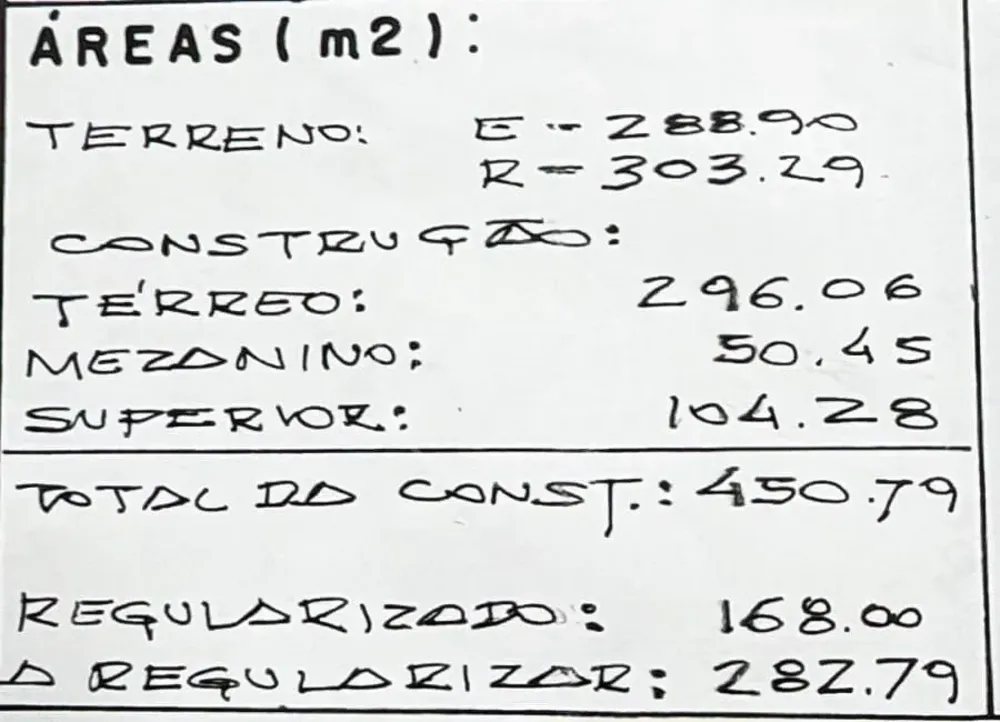 ÁREAS (m2):
TERRENO: E - 288.90
R - 303.29
CONSTRUÇÃO:
TÉRREO: 296.06
MEZANINO: 50.45
SUPERIOR: 104.28
TOTAL DA CONST.: 450.79
REGULARIZADO: 168.00
A REGULARIZAR: 282.79